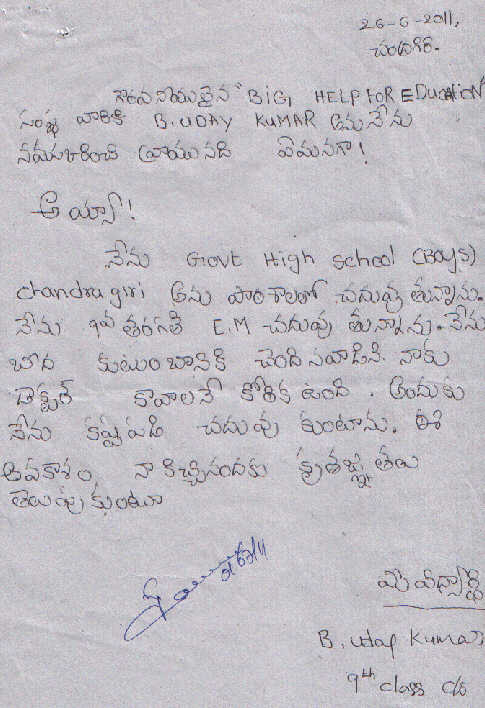 26-6-2011,
చంద్రగిరి.
గౌరవనీయులైన "BIG, HELP FOR EDUcATION"
సంస్థ వారికి B. UDAY KUMAR అను నేను
నమస్కరించి వ్రాయునది ఏమనగా!
అయ్యా!
నేను Govt High School (Boys)
chandragiri అను పాఠశాలలో చదువుతున్నాను.
నేను 9వ తరగతి E.M చదువుతున్నాను. నేను
బీద కుటుంబానికి చెందినవాడిని. నాకు
డాక్టర్ కావాలనే కోరిక ఉంది. అందుకు
నేను కష్టపడి చదువుకుంటాను. ఈ
అవకాశం నా కిచ్చినందుకు కృతజ్ఞతలు
తెలుపుకుంటూ
మీ విద్యార్థి
B. Uday Kumar,
9th class